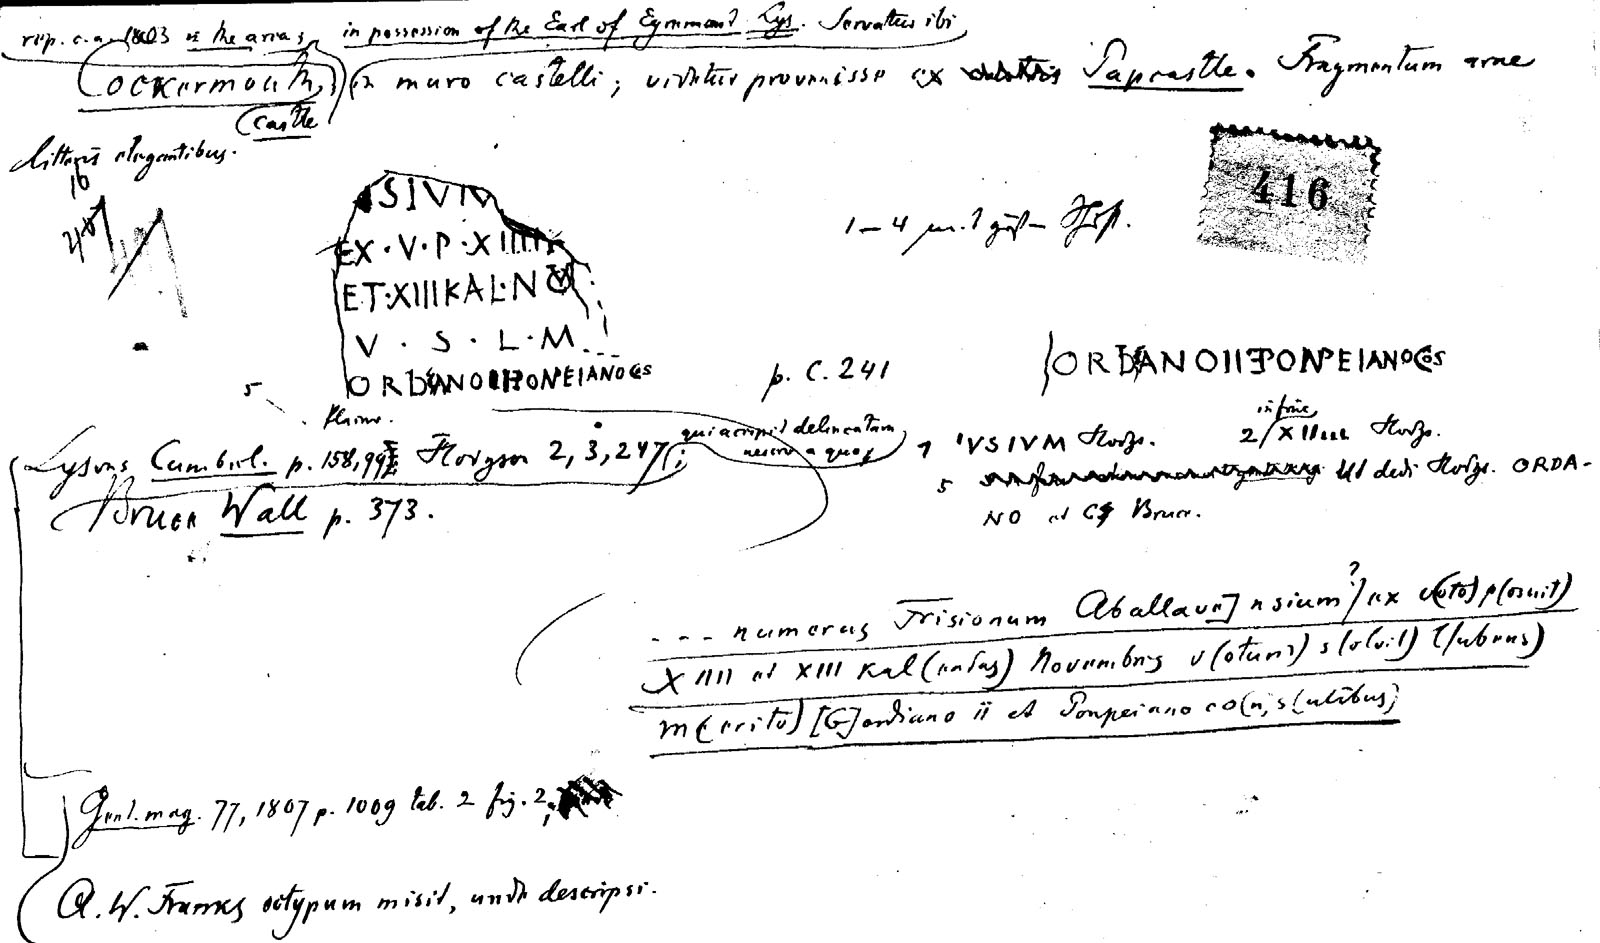 rep. c. a. 1803 in the area, in possession of the Earl of Egremont Lys. Servatur ibi
Cockermouth, in muro castelli; videtur provenisse ex Papcastle. Fragmentum arae
castle
litteris elegantibus.
16
416
SIVM
EX · V · P · XIIII
ET · XIII KAL · NOV
V · S · L · M
ORDIANO II ET PONPEIANO COS
5
p. C. 241
ORDIANO II ET PONPEIANO COS
Lysons Cumberl. p. 158, Hodgson 2, 3, 247; qui accepit delineatum nescio a quo;
Bruce Wall p. 373.
1 VSIVM Hodgs. 2 in fine XIII Hodgs.
5 Ut dedi Hodgs. ORDA-
NO et Bruce.
- - - numerus Frisionum Aballave]nsium? ex v(oto) p(osuit)
XIIII et XIII kal(endas) Novembres v(otum) s(olvit) l(ubens)
m(erito) [G]ordiano ii et Ponpeiano co(n)s(ulibus)
Gent. mag. 77, 1807 p. 1009 tab. 2 fig. 2;
A. W. Franks ectypum misit, unde descripsi.